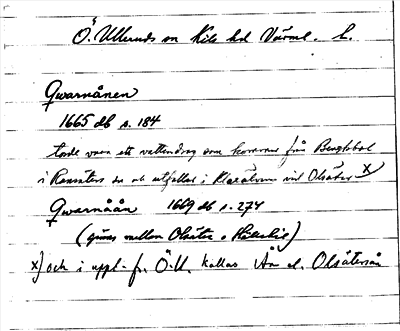 Ö. Ulleruds sn Kils hd Värml. l.
Qwarnånen
1665 db s. 184
torde vara ett vattendrag som kommer från
i Ransäters sn och utfaller i Klarälven vid Olsäter x)
Qwarnåån 1669 db s. 274
(gräns mellan Olsäter o )
x) och i uppt. fr. Ö.U. kallas Ån el. Olsätersån